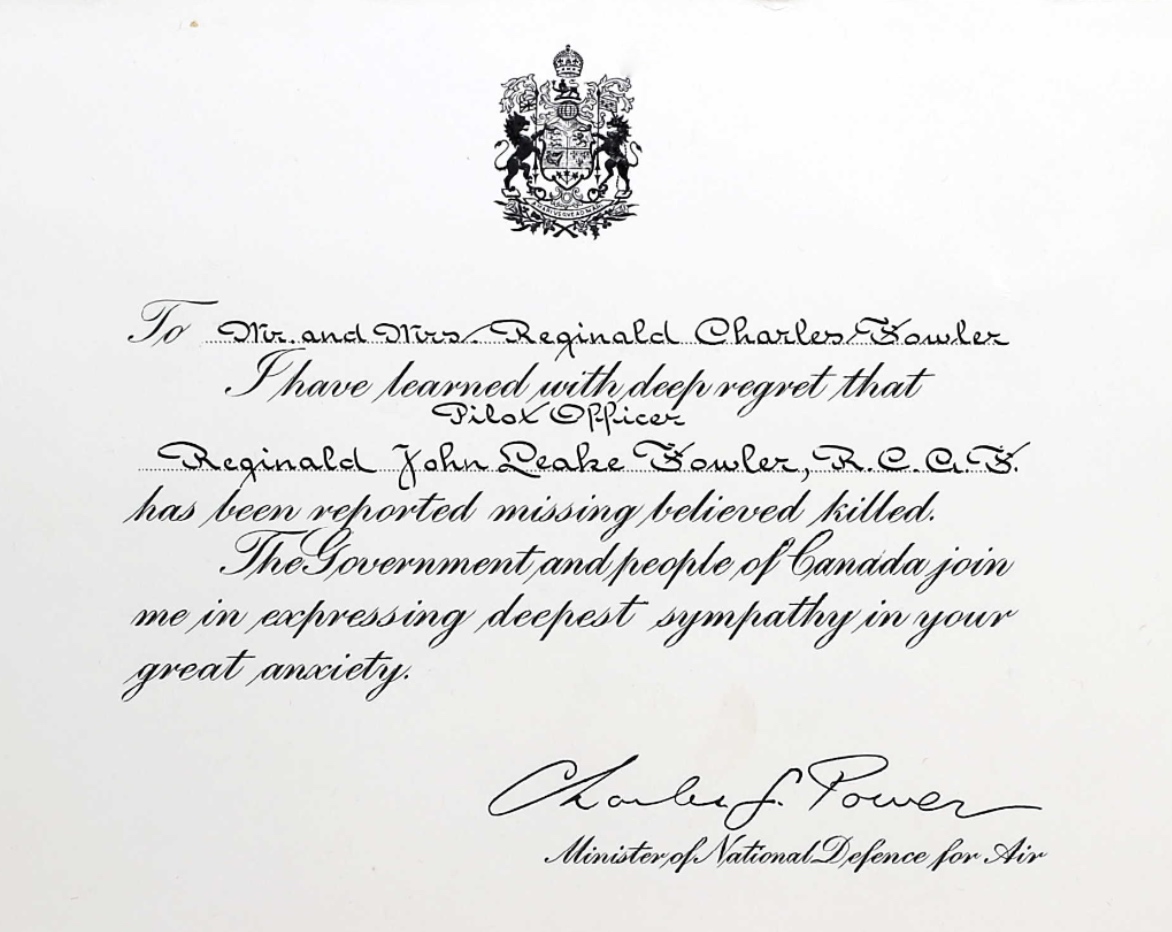 To Mr. and Mrs. Reginald Charles Fowler
I have learned with deep regret that
Pilot Officer
Reginald John Leake Fowler, R.C.A.F.
has been reported missing believed killed.
The Government and people of Canada join
me in expressing deepest sympathy in your
great anxiety.
Charles G. Power
Minister of National Defence for Air